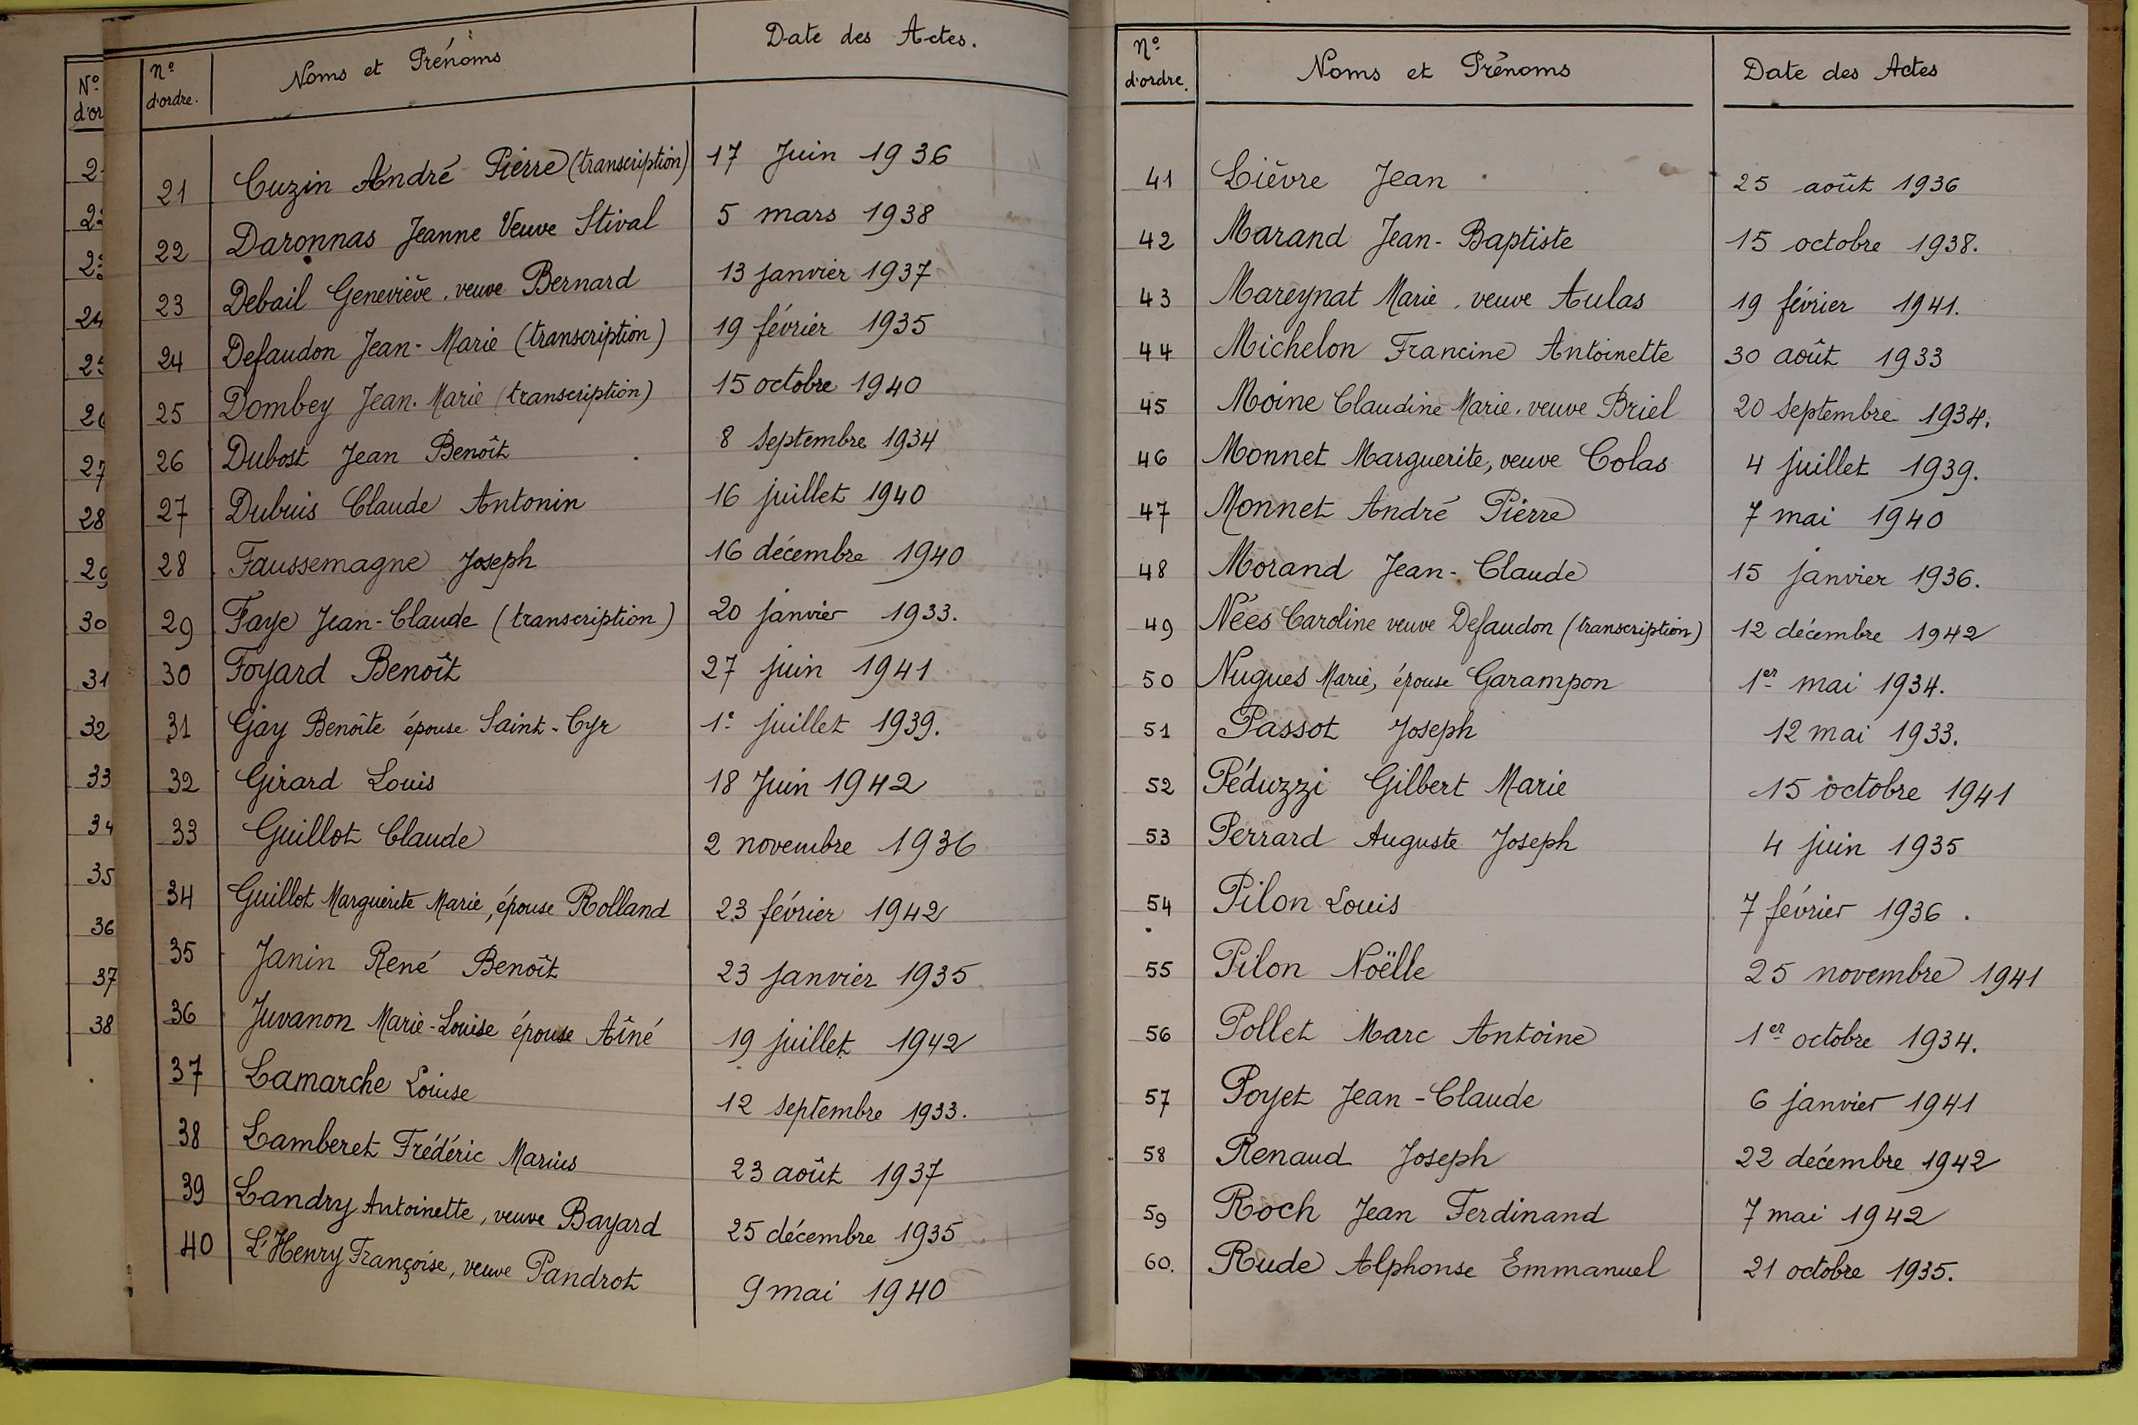 N° d'ordre. Noms et Prénoms Date des Actes.
21 Cuzin André Pierre (transcription) 17 Juin 1936
22 Daronnas Jeanne Veuve Stival 5 mars 1938
23 Debail Geneviève, veuve Bernard 13 janvier 1937
24 Defaudon Jean-Marie (transcription) 19 février 1935
25 Dombey Jean-Marie (transcription) 15 octobre 1940
26 Dubost Jean Benoît 8 septembre 1934
27 Dubuis Claude Antonin 16 juillet 1940
28 Faussemagne Joseph 16 décembre 1940
29 Faye Jean-Claude (transcription) 20 janvier 1933.
30 Foyard Benoît 27 juin 1941
31 Gay Benoîte épouse Saint-Cyr 1e juillet 1939.
32 Girard Louis 18 Juin 1942
33 Guillot Claude 2 novembre 1936
34 Guillot Marguerite Marie, épouse Rolland 23 février 1942
35 Janin René Benoît 23 janvier 1935
36 Juvanon Marie-Louise épouse Aîné 19 juillet 1942
37 Lamarche Louise 12 septembre 1933.
38 Lamberet Frédéric Marius 23 août 1937
39 Landry Antoinette, veuve Bayard 25 décembre 1935
40 L'Henry Françoise, veuve Pandrot 9 mai 1940
N° d'ordre. Noms et Prénoms Date des Actes
41 Lièvre Jean 25 août 1936
42 Marand Jean-Baptiste 15 octobre 1938.
43 Mareynat Marie, veuve Aulas 19 février 1941.
44 Michelon Francine Antoinette 30 août 1933
45 Moine Claudine Marie, veuve Briel 20 septembre 1934.
46 Monnet Marguerite, veuve Colas 4 juillet 1939.
47 Monnet André Pierre 7 mai 1940
48 Morand Jean-Claude 15 janvier 1936.
49 Nées Caroline veuve Defaudon (transcription) 12 décembre 1942
50 Nugues Marie, épouse Garampon 1er mai 1934.
51 Passot Joseph 12 mai 1933.
52 Péduzzi Gilbert Marie 15 octobre 1941
53 Perrard Auguste Joseph 4 juin 1935
54 Pilon Louis 7 février 1936.
55 Pilon Noëlle 25 novembre 1941
56 Pollet Marc Antoine 1er octobre 1934.
57 Poyet Jean-Claude 6 janvier 1941
58 Renaud Joseph 22 décembre 1942
59 Roch Jean Ferdinand 7 mai 1942
60. Rude Alphonse Emmanuel 21 octobre 1935.